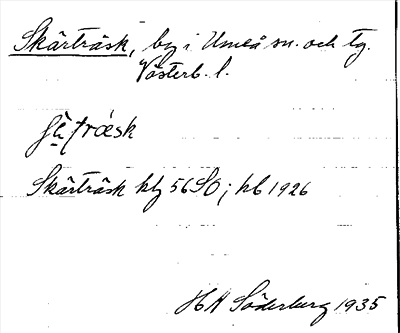 Skärträsk, by i Umeå sn. och tg.
Västerb. l.
träsk
Skärträsk ktg 56 SO; kb 1926
H H Söderberg 1935